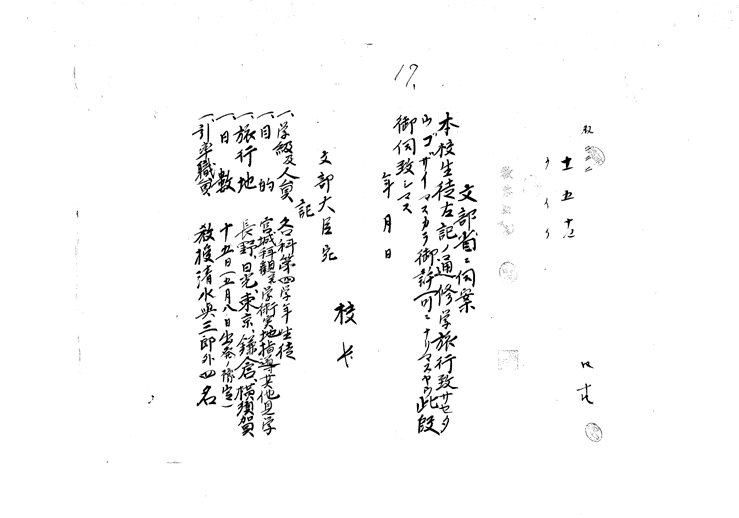 17.
文部省ニ伺案
本校生徒左記ノ通修学旅行致サセタ
ウゴザイマスカラ御許可ニナリマスヤウ此段
御伺致シマス
年 月 日
校長
文部大臣宛
記
一、学級及人員 各科第四学年生徒
一、目的 宮城拝観並学術実地指導其他見学
一、旅行地 長野、日光、東京、鎌倉、横須賀
一、日数 十五日(五月八日出発ノ豫定)
一、引率職員 教授清水與三郎外四名